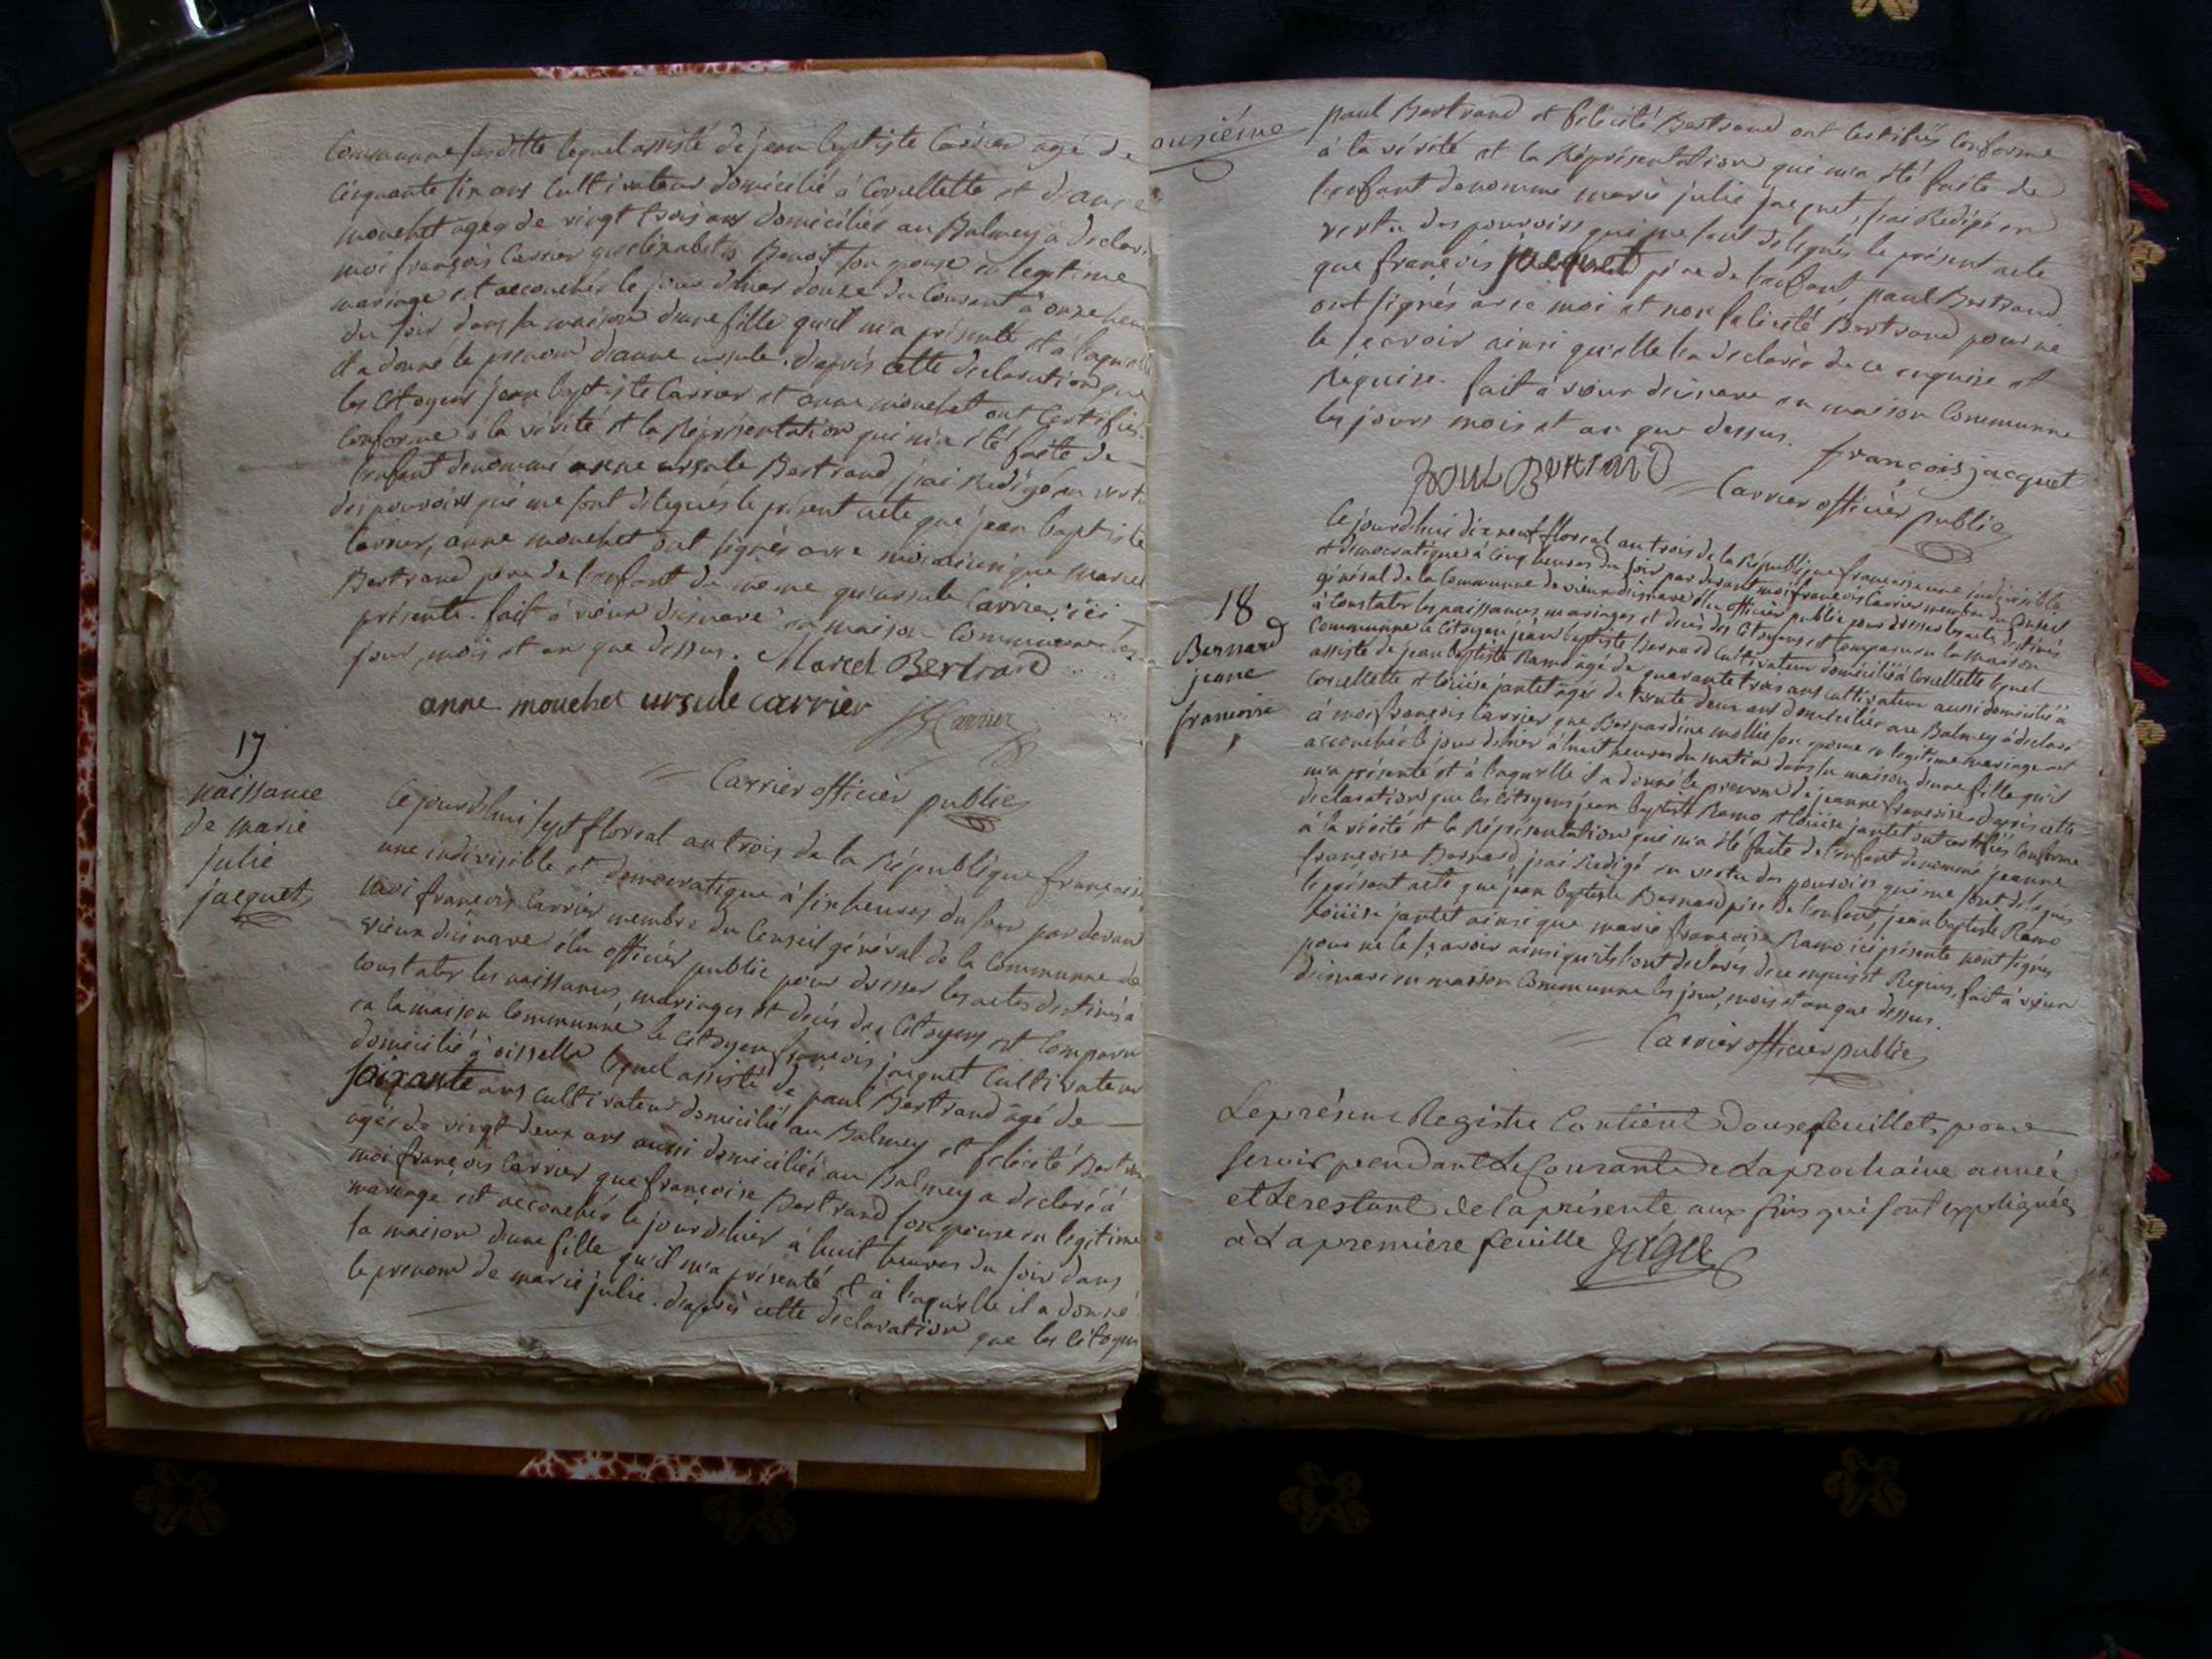 Communne susditte lequel assisté de jean baptiste Carrier agé de
cinquante six ans Cultivateur domicilié à Corcellette et d'anne
mouchet agée de vingt trois ans domiciliée au Balmey a declaré
moi françois Carrier qu'elizabeth Benoit son epouse en legitime
mariage est accouchée le jour d'hier douze du Courant à onze heure
du soir dans sa maison d'une fille qu'il m'a présenté et à laquelle
il a donné le prenom d'anne ursule. d'après cette declaration que
les Citoyens jean baptiste Carrier et anne mouchet ont Certifiés
Conforme à la vérité et la Réprésentation qui m'a été faite de
l'enfant denommé anne ursule Bertrand j'ai Redigé en vertu
des pouvoirs qui me sont delegués le présent acte que jean baptiste
Carrier, anne mouchet ont signés avec moi ainsi que Marcel
Bertrand pere de l'enfant de même qu'ursule Carrier ici
présente. fait à vieux d'isnave en maison Communne les
jour, mois et an que dessus. Marcel Bertrand
anne mouchet ursule carrier JBCarrier
Carrier officier public
17
naissance
de marie
julie
jacquet
Cejourd'hui sept floreal an trois de la République françoise
une indivisible et democratique à six heures du soir par devant
moi françois Carrier membre du Conseil général de la Communne de
vieux d'isnave élu officier public pour dresser les actes destinés à
Constater les naissances, mariages et decés des Citoyens est Comparu
en la maison Communne le Citoyen françois jacquet Cultivateur
domicilié à oisselle lequel assisté de paul Bertrand âgé de
soixante ans cultivateur domicilié au Balmey et felicité Bertrand
agée de vingt deux ans aussi domiciliée au Balmey a declaré à
moi françois Carrier que françoise Bertrand son epouse en legitime
mariage est accouchée le jour d'hier à huit heures du soir dans
sa maison d'une fille qu'il m'a présenté et à laquelle il a donné
le prenom de marie julie. d'après cette declaration que les Citoyens
onzième
paul Bertrand et felicité Bertrand ont Certifiés Conforme
à la vérité et la Réprésentation qui m'a été faite de
l'enfant denommé marie julie jacquet, j'ai Redigé en
vertu des pouvoirs qui me sont delegués le présent acte
que françois jacquet père de l'enfant paul Bertrand
ont signés avec moi et non felicité Bertrand pour ne
le sçavoir ainsi qu'elle l'a declarée de ce enquise et
Requise. fait à vieux d'isnave en maison Communne
les jours mois et an que dessus. françois jacquet
PAUL BERTRAND
Carrier officier public
18
Bernard
jeanne
francoise
Cejourd'hui dix neuf floreal an trois de la République françoise une indivisible
et democratique à Cinq heures du soir par devant moi françois Carrier membre du Conseil
général de la Communne de vieux d'isnave élu officier public pour dresser les actes destinés
à Constater les naissances mariages et decés des Citoyens est Comparu en la maison
Communne le Citoyen jean baptiste Bernard Cultivateur domicilié à Corcellette lequel
assisté de jean baptiste Ramo âgé de quarante trois ans cultivateur aussi domicilié à
Corcellette et Louise jantet agée de trente deux ans domiciliée au Balmey a declaré
à moi françois Carrier que Bernardine mollie son epouse en legitime mariage est
accouchée le jour d'hier à huit heures du matin dans sa maison d'une fille qu'il
m'a présenté et à laquelle il a donné le prenom de jeanne françoise. d'après cette
declaration que les Citoyens jean baptiste Ramo et Louise jantet ont certifiés Conforme
à la vérité et la Réprésentation qui m'a été faite de l'enfant denommé jeanne
françoise Bernard j'ai Redigé en vertu des pouvoirs qui me sont delegués
le présent acte que jean baptiste Bernard père de l'enfant, jean baptiste Ramo
Louise jantet ainsi que marie françoise Ramo ici présente n'ont signés
pour ne le sçavoir ainsi qu'ils l'ont declarés de ce enquis et Requis, fait à vieux
d'isnave en maison Communne les jour, mois et an que dessus.
Carrier officier public
Le présent Registre Contient Douze feuillets pour
servir pendant le Courant de La prochaine année
et Le restant de la présente aux fins qui sont expliquées
à La première feuille